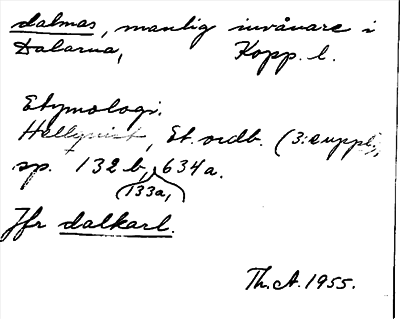 dalmas, manlig invånare i
Dalarna, Kopp. l.
Etymologi.
Hellquist, Et. ordb. (3:e uppl.,
sp. 132 b, 634 a.
133a,
Jfr dalkarl.
Th. A. 1955.